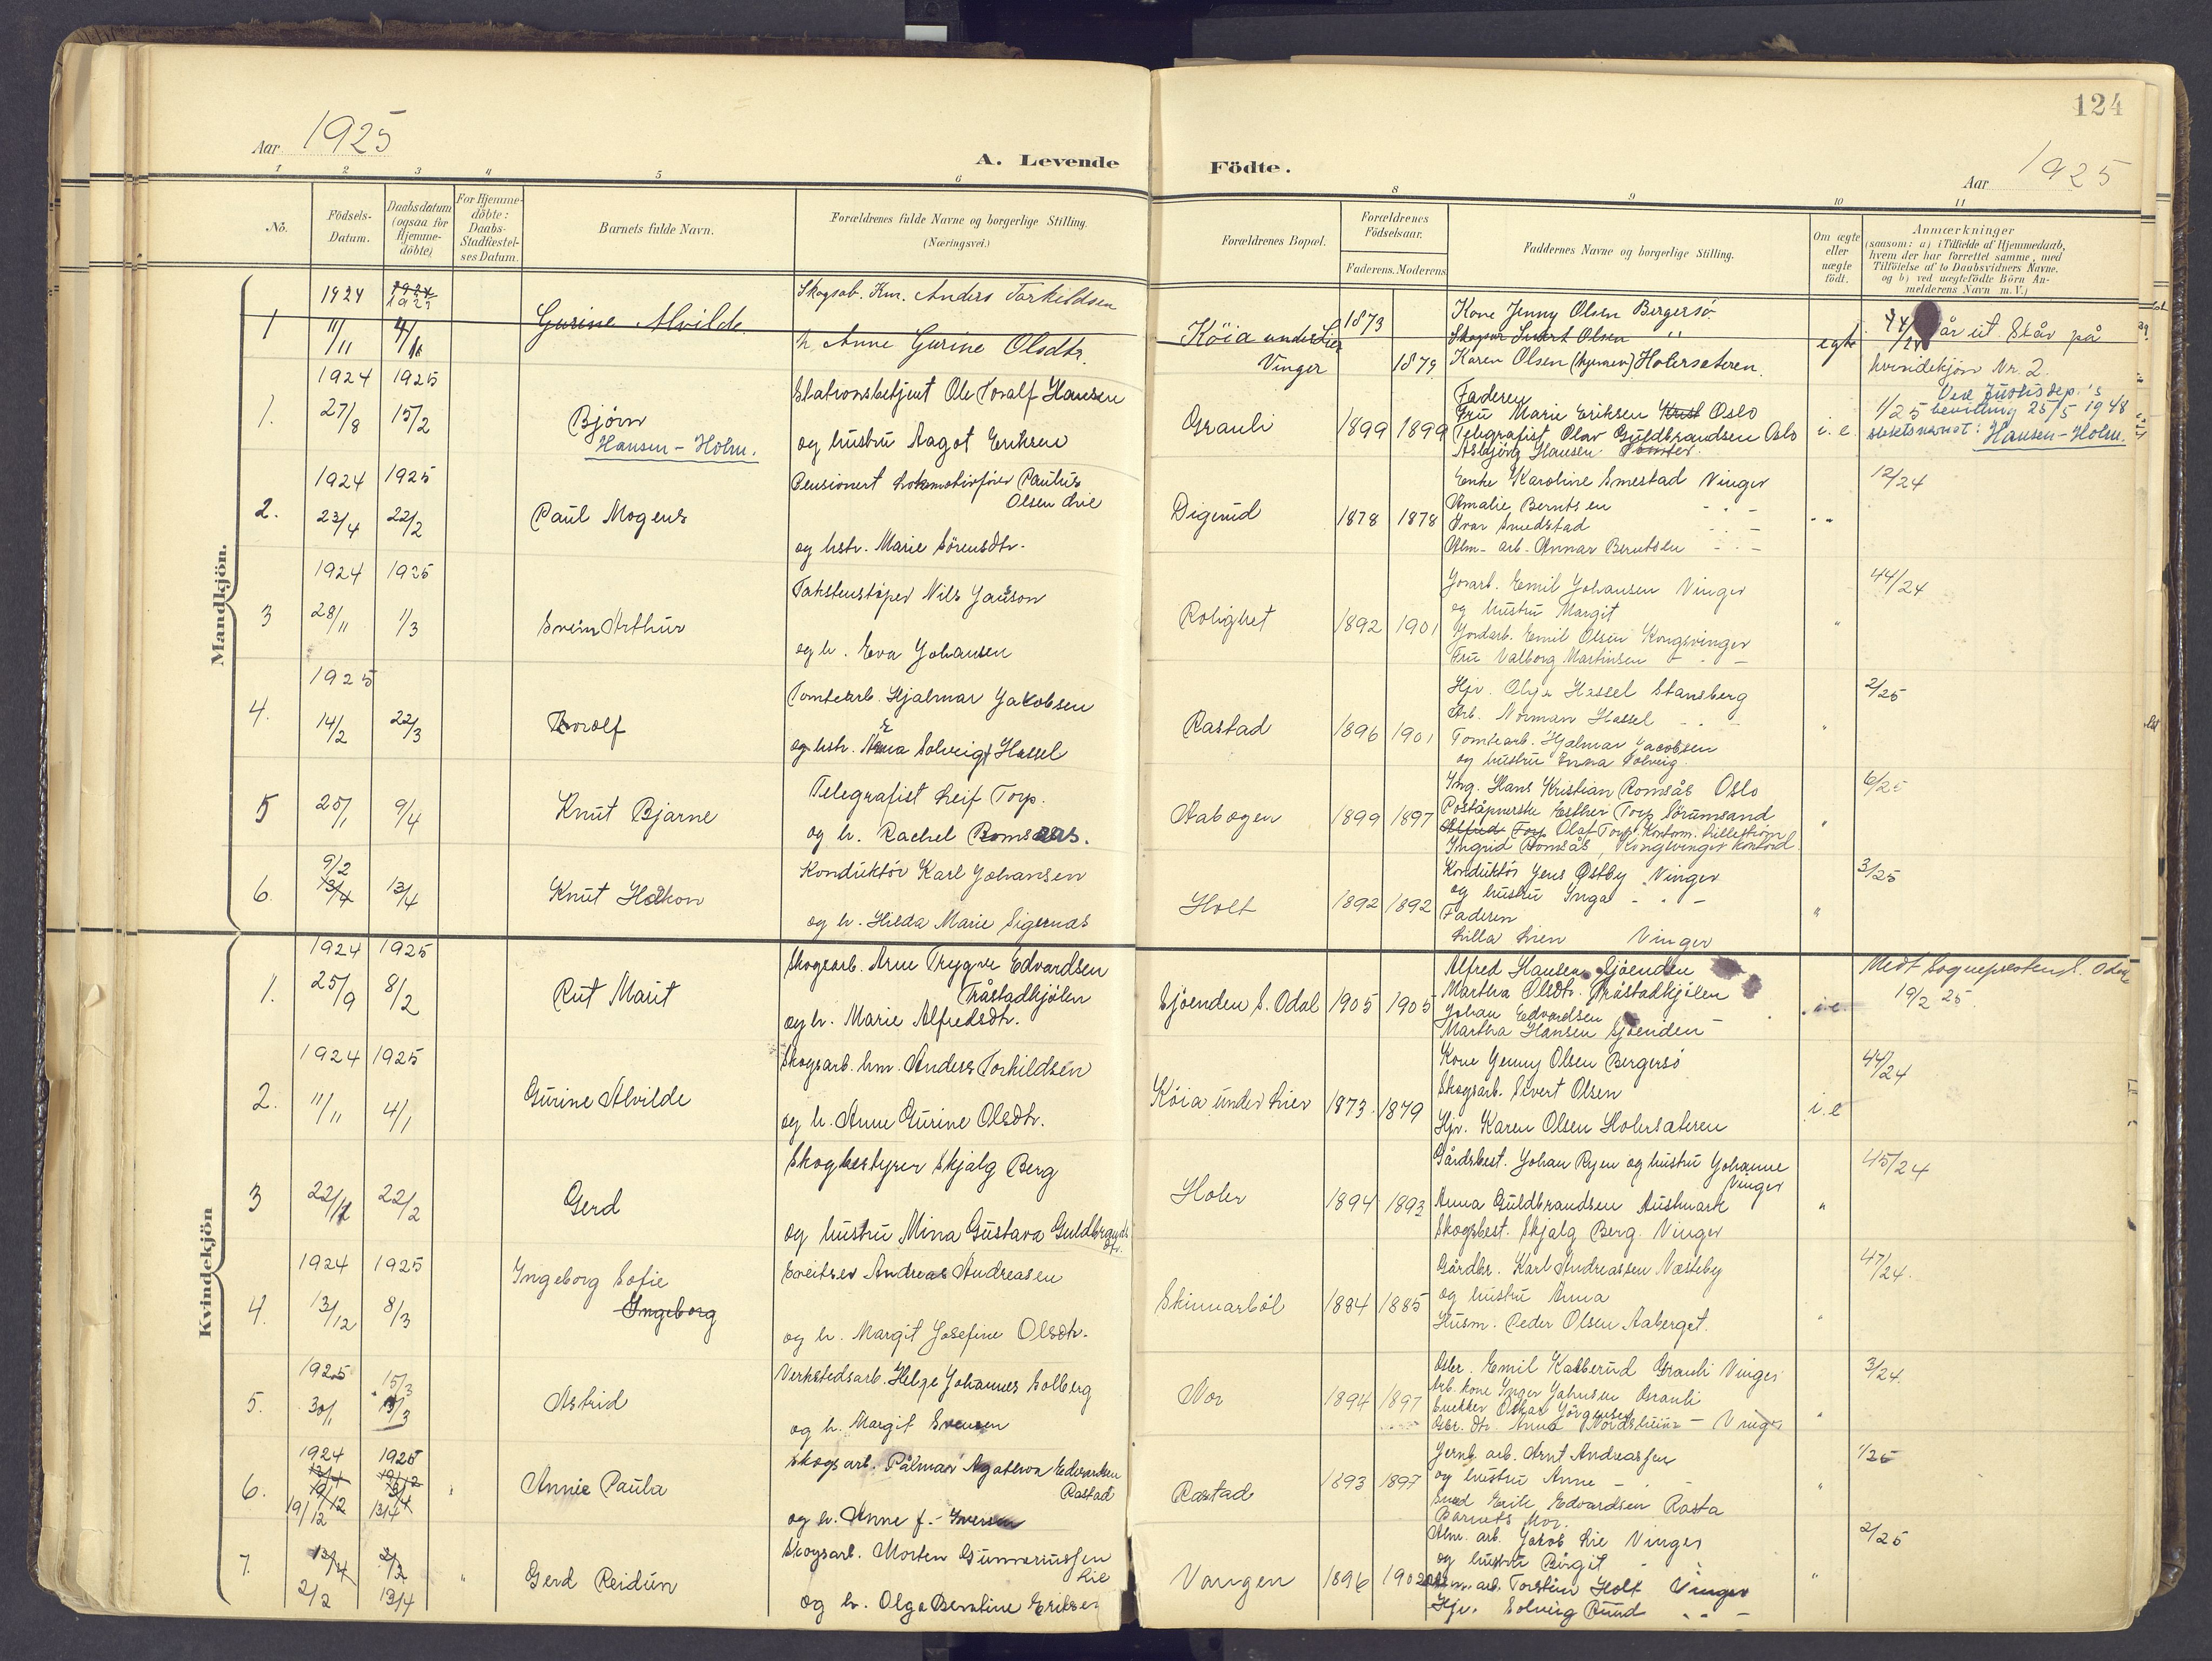 124
Aar 1925
A. Levende
Födte.
Aar 1925
1 2 3 4 5 6 8 9 10 11
No.
Födsels-Datum.
Daabsdatum (ogsaa for Hjemme-döbte)
For Hjemme-döbte: Daabs-Stadfæstel-ses Datum.
Barnets fulde Navn.
Forældrenes fulde Navne og borgerlige Stilling.
(Næringsvei.)
Forældrenes Bopæl.
Forældrenes Födselsaar.
Faderens. Moderens
Faddernes Navne og borgerlige Stilling.
Om ægte eller uægte födt.
Anmærkninger
(saasom: a) i Tilfælde af Hjemmedaab,
hvem der har forrettet samme, med
Tilföielse af to Daabsvidners Navne.
og b) ved uægtefödte Börn An-
melderens Navn m. V.)
Mandkjön.
1
1924 11/11
Gurine Alvilde
Skogsab. Km. Anders Torkildsen
h. Anne Gurine Olsdtr.
Köia under Lier
Vinger
1873 1879
Kone Jenny Olsen Bergersö
Sivert Olsen "
Karen Olsen Holersæteren
egte
går ut. Står på
kvindekjön Nr. 2.
1.
1924 27/8
1925 15/2
Bjørn
Hansen-Holm.
Stationsbetjent Ole Toralf Hansen
og hustru Aagot Eriksen
Grauli
1899 1899
Faderen
Fru Marie Eriksen Oslo
Telegrafist Olav Guldbrandsen Oslo
Asbjörg Hansen
i. e.
1/25
Ved Justisdep.'s
bevilling 25/5 1948
slektsnavnet: Hansen-Holm.
2.
1924 23/4
1925 22/2
Paul Mogens
Pensionert Lokomotivfører Paulus
Olsen Lie
og hstr. Marie Sörensdtr.
Digerud
1878 1878
Enke Karoline Smestad Vinger
Amalie Berntsen - " -
Ivar Smedstad - " -
Alm. arb. Annar Berntsen - " -
12/24
3
1924 28/11
1925 1/3
Svein Arthur
Takstensköper Nils Janson
og h. Eva Johansen
Rolighet
1892 1901
Jordarb. Emil Johansen Vinger
og hustru Margit
Jordarb. Emil Olsen Kongsvinger
Fru Valborg Martinsen - " -
44/24
4.
1925 14/2
22/3
Torolf
Tomtearb. Hjalmar Jakobsen
og hstr. Solveig Hassel
Rastad
1896 1901
Hjv. Olga Hassel Stansberg
Arb. Norman Hassel - " -
Tomtearb. Hjalmar Jacobsen
og hustru Enna Solveig
2/25
5
25/1
9/4
Knut Bjarne
Telegrafist Leif Torp.
og h. Rachel Romsaas.
Aabogen
1899 1897
Ing. Hans Kristian Romsås Oslo
Poståpnerske Esther Torp Sörumsand
Alfred Torp Olaf Torp, Kontorm. Lilleström
Ingrid Romsås, Kongsvinger
6/25
6.
9/2
13/4
13/4
Knut Håkon
Konduktör Karl Johansen
og h. Hilda Marie Sigernæs
Holt
1892 1892
Konduktör Jens Østby Vinger
og hustru Inga - " -
Faderen
Lilla Lien Vinger
3/25
Kvindekjön
1.
1924 25/9
1925 8/2
Rut Maut
Skogsarb. Arne Trygve Edvardsen
Tråstadkjölen
og h. Marie Alfredsdtr.
Sjöenden S. Odal
1905 1905
Alfred Hansen Sjöenden
Martha Olsdtr. Tråstadkjölen
Johan Edvardsen
Martha Hansen Sjöenden
i.e.
Medt Sognepresten S. Odal
19/2 25.
2.
1924 11/11
1925 4/1
Gurine Alvilde
Skogsarb. km. Anders Torkildsen
og h. Anne Gurine Olsdtr.
Köia under Lier
1873 1879
Kone Jenny Olsen Bergersö
Skogsarb. Sivert Olsen
Hjv. Karen Olsen Holersæteren
i.e
44/24
3
22/11
22/2
Gerd
Skogbestyrer Skjalg Berg
og hustru Mina Gustava Guldbrandsdtr.
Holer
1894 1893
Gårdsbest. Johan Ryen og hustru Johanne
Vinger
Anna Guldbrandsen Austmark
Skogsbest. Skjalg Berg. Vinger
45/24
4.
1924 13/12
1925 8/3
Ingeborg Sofie
Ingeborg
Sveitser Andreas Andreasen
og h. Margit Josefine Olsdtr.
Skinnarböl
1884 1885
Gårdbr. Karl Andreassen Næsteby
og hustru Anna
Husm. Peder Olsen Aaberget.
47/24.
5.
1925 30/1
15/3
Astrid
Verkstedsarb. Helge Johannes Solberg
og h. Margit Svensen
Nor
1894 1897
Emil Kalberud Grauli Vinger
Arb. kone Inger Jahnsen Grauli
Snekker Oskar Jörgensen
Gbr. dtr. Anna Nordsheim - Vinger
3/24
6.
1924 19/12
1925 13/4
Annie Paula
Skogsarb. Palmar Agathon Edvardsen
Rastad
og h. Anne f. Iversen
Rastad
1893 1897
Jernb. arb. Arnt Andreassen
og hustru Anne - " -
Smed Erik Edvardsen Rasta
Barnets Mor.
1/25
7.
2/2
13/4
Gerd Reidun
Skogsarb. Morten Gunneriussen
Lie
og h. Olga Berntine Eriksen
Vangen
1896 1902
Alm. arb. Jakob Lie Vinger
og hustru Birgit "
arb. Torstein Holt Vinger
Hjv. Solveig Ruud - " -
2/25